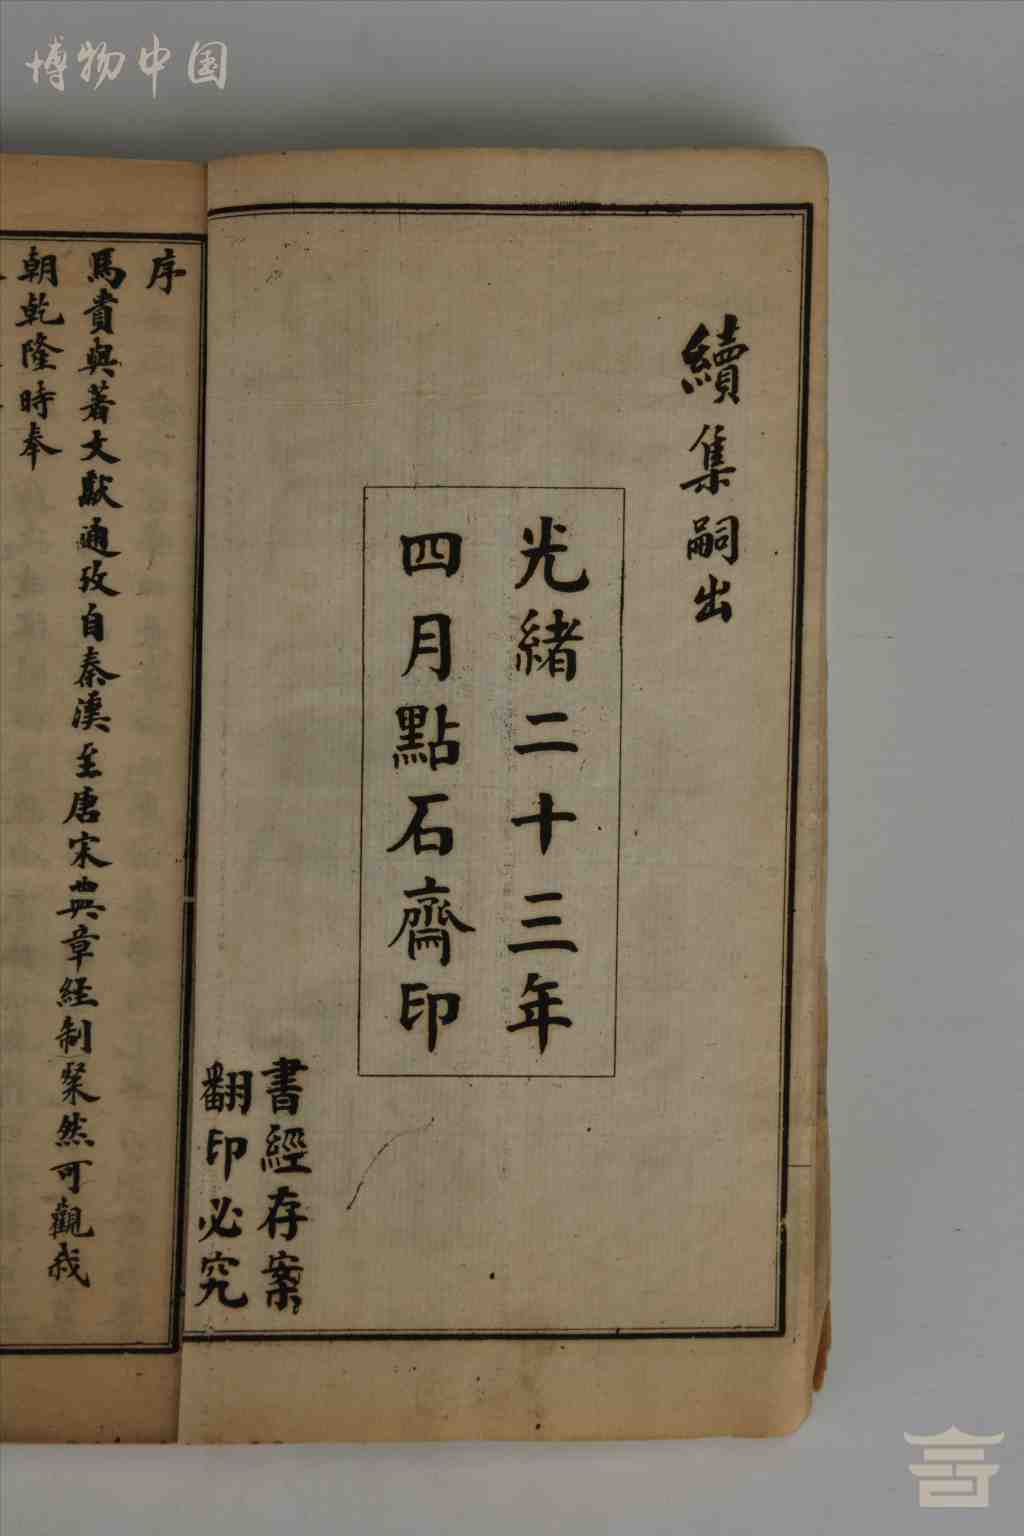 博物中国
續集嗣出
光緒二十三年
四月點石齋印
書經存案
翻印必究
序
馬貴與著文獻通攷自秦漢至唐宋典章經制粲然可觀我
朝乾隆時奉